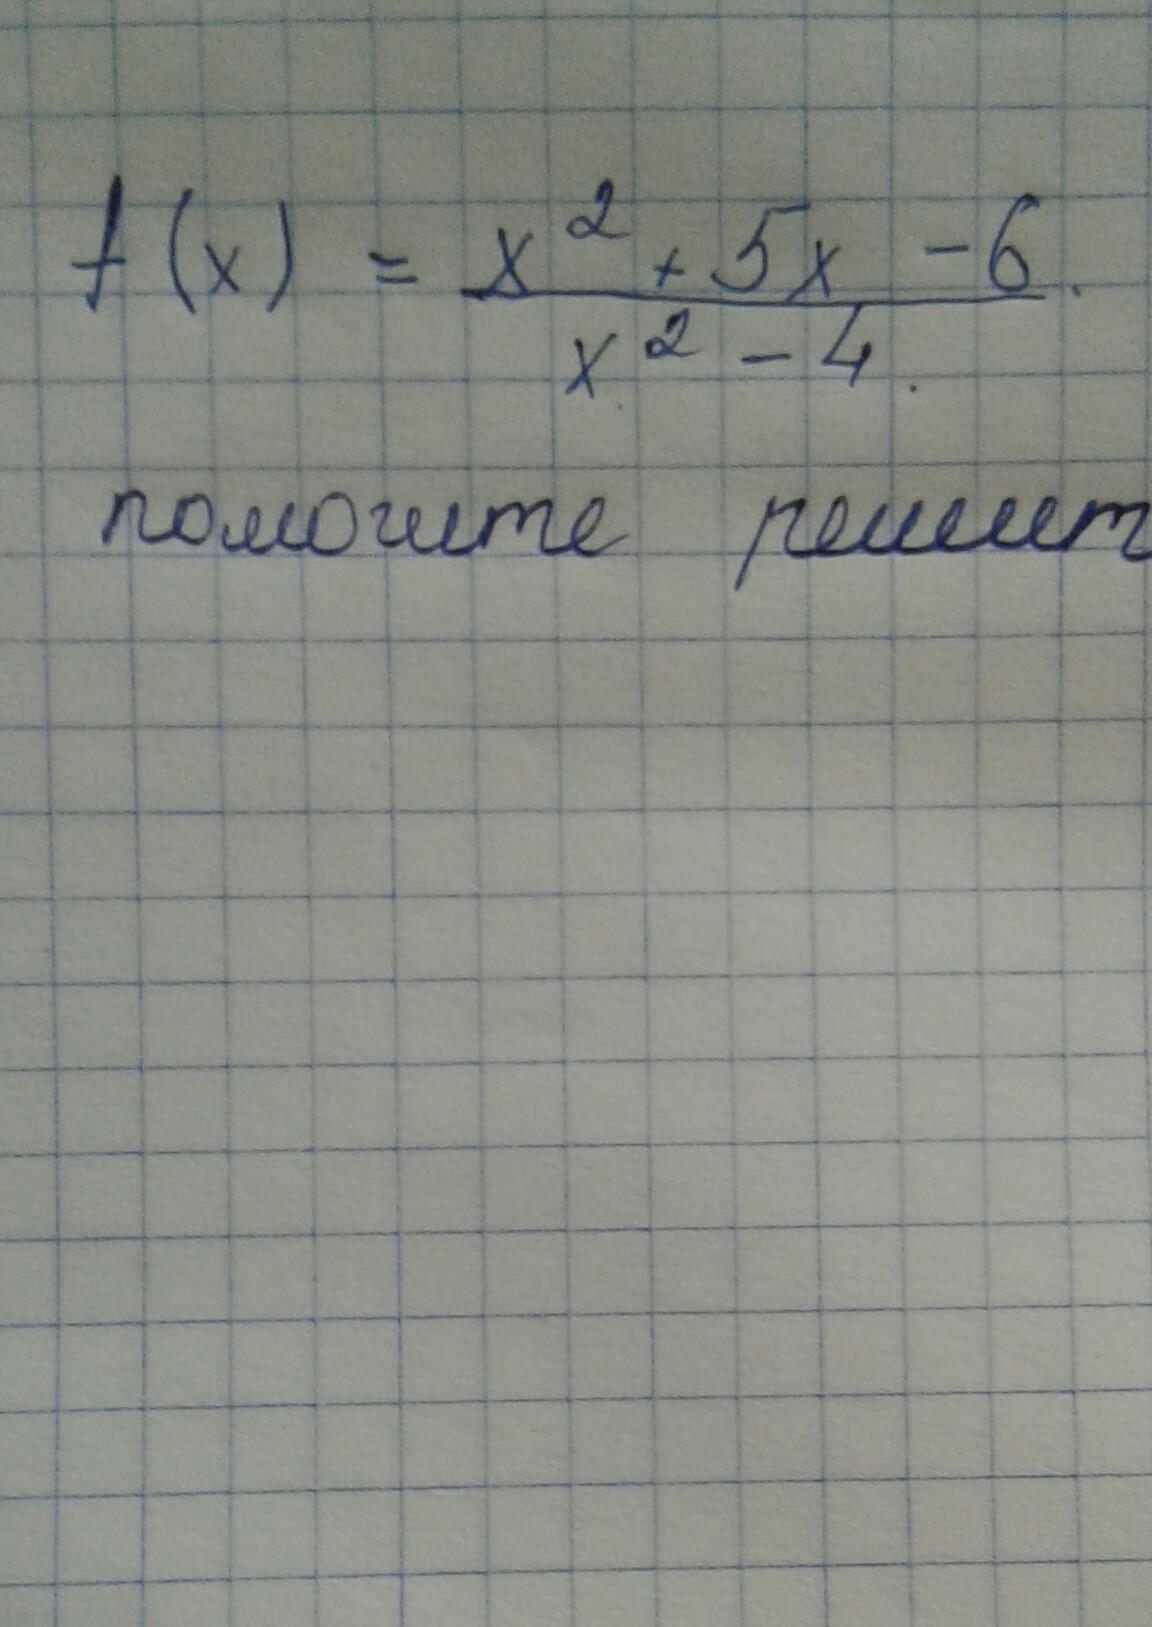 f(x) = x² + 5x - 6.
x² - 4.
помогите решит